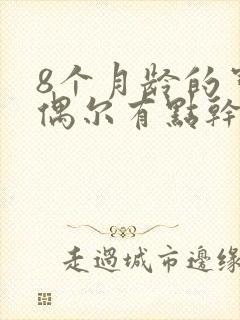 8个月龄的
偶尔有點幹
走過城市邊緣